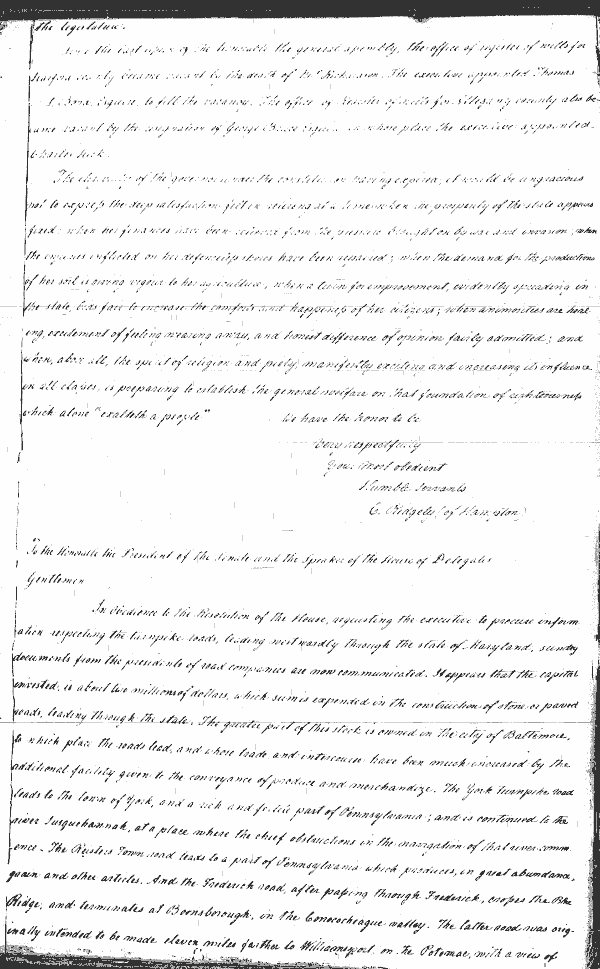 the legislature.
Since the last session of the honorable the general assembly, the office of register of wills for
Harford county became vacant by the death of Mr. Richardson. The executive appointed Thomas
S. Bond, Esquire, to fill the vacancy. The office of Register of wills for Allegany county also be-
came vacant by the resignation of George Bruce Esquire in whose place the executive appointed
Charles
The eligibility of the governor under the constitution having expired, it would be ungracious
not to express the deep satisfaction felt in retiring at a time when the prosperity of the state appears
fixed: when her finances have been relieved from the pressure brought on by war and invasion; when
the injuries inflicted on her defenceless shores have been repaired; when the demand for the productions
of her soil is giving vigour to her agriculture, when a taste for improvement, evidently spreading in
the state, bids fair to increase the comforts and happiness of her citizens; when animosities are heal-
ing, excitement of feeling wearing away, and honest difference of opinion fairly admitted; and
when, above all, the spirit of religion and piety, manifestly exciting and increasing its influence
in all classes, is preparing to establish the general welfare on that foundation of righteousness
which alone "exalteth a people"
We have the honor to be
Very respectfully
Your Most obedient
Humble Servants
C. Ridgely (of Hampton)
To the Honorable the President of the Senate and the Speaker of the House of Delegates
Gentlemen
In obedience to the Resolution of the House, requesting the executive to procure inform
ation respecting the turnpike roads, leading westwardly through the state of Maryland, sundry
documents from the presidents of road companies are now communicated. It appears that the capital
invested, is about two millions of dollars, which sum is expended in the construction of stone or paved
roads, leading through the state. The greater part of this stock is owned in the city of Baltimore,
to which place the roads lead, and whose trade and intercourse have been much increased by the
additional facility given to the conveyance of produce and merchandize. The York turnpike road
leads to the town of York, and a rich and fertile part of Pennsylvania; and is continued to the
river Susquehannah, at a place where the chief obstructions in the navigation of that river comm
ence. The Rusters Town road leads to a part of Pennsylvania which produces, in great abundance,
grain and other articles. And the Frederick road, after passing through Frederick, crosses the Blue
Ridge, and terminates at Boonsborough, in the Conococheague valley. The latter road was orig-
inally intended to be made eleven miles farther to Williamsport on the Potomac, with a view of